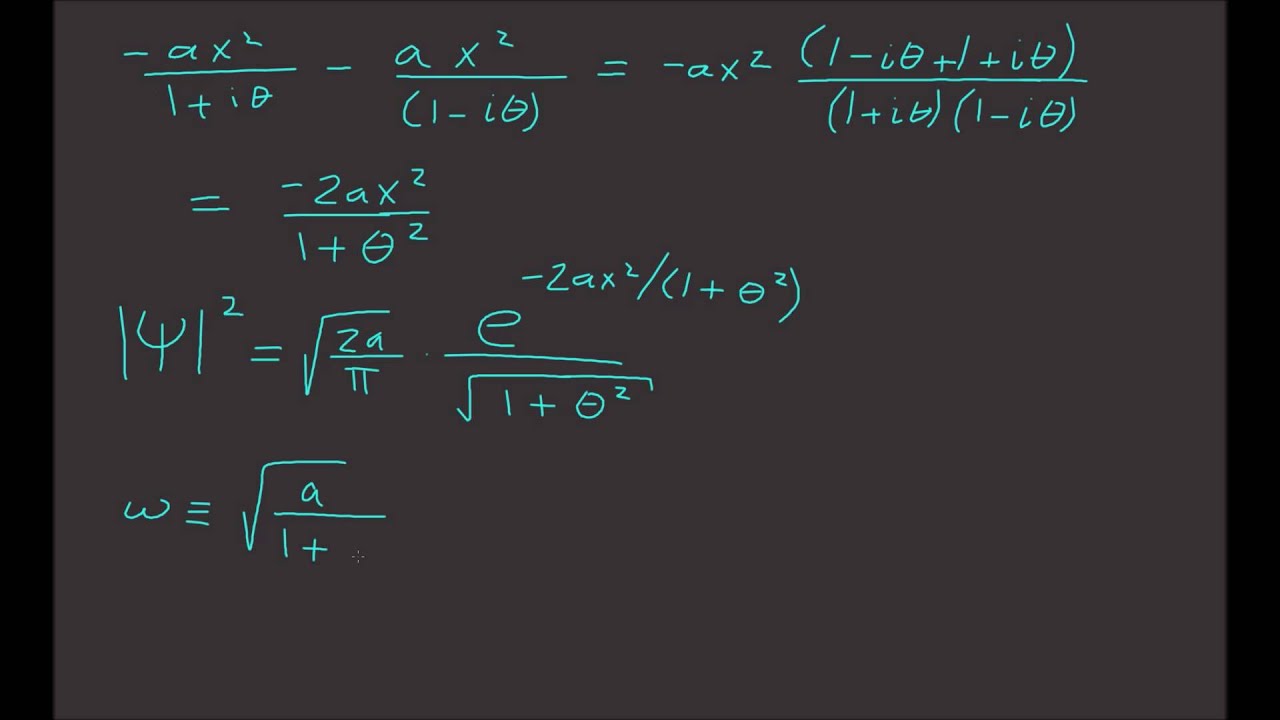 -ax²/(1+iθ) - ax²/(1-iθ) = -ax² (1-iθ+1+iθ)/((1+iθ)(1-iθ))
= -2ax²/(1+θ²)
|Ψ|² = √(2a/π) · e^(-2ax²/(1+θ²))/√(1+θ²)
w ≡ √(a/(1+